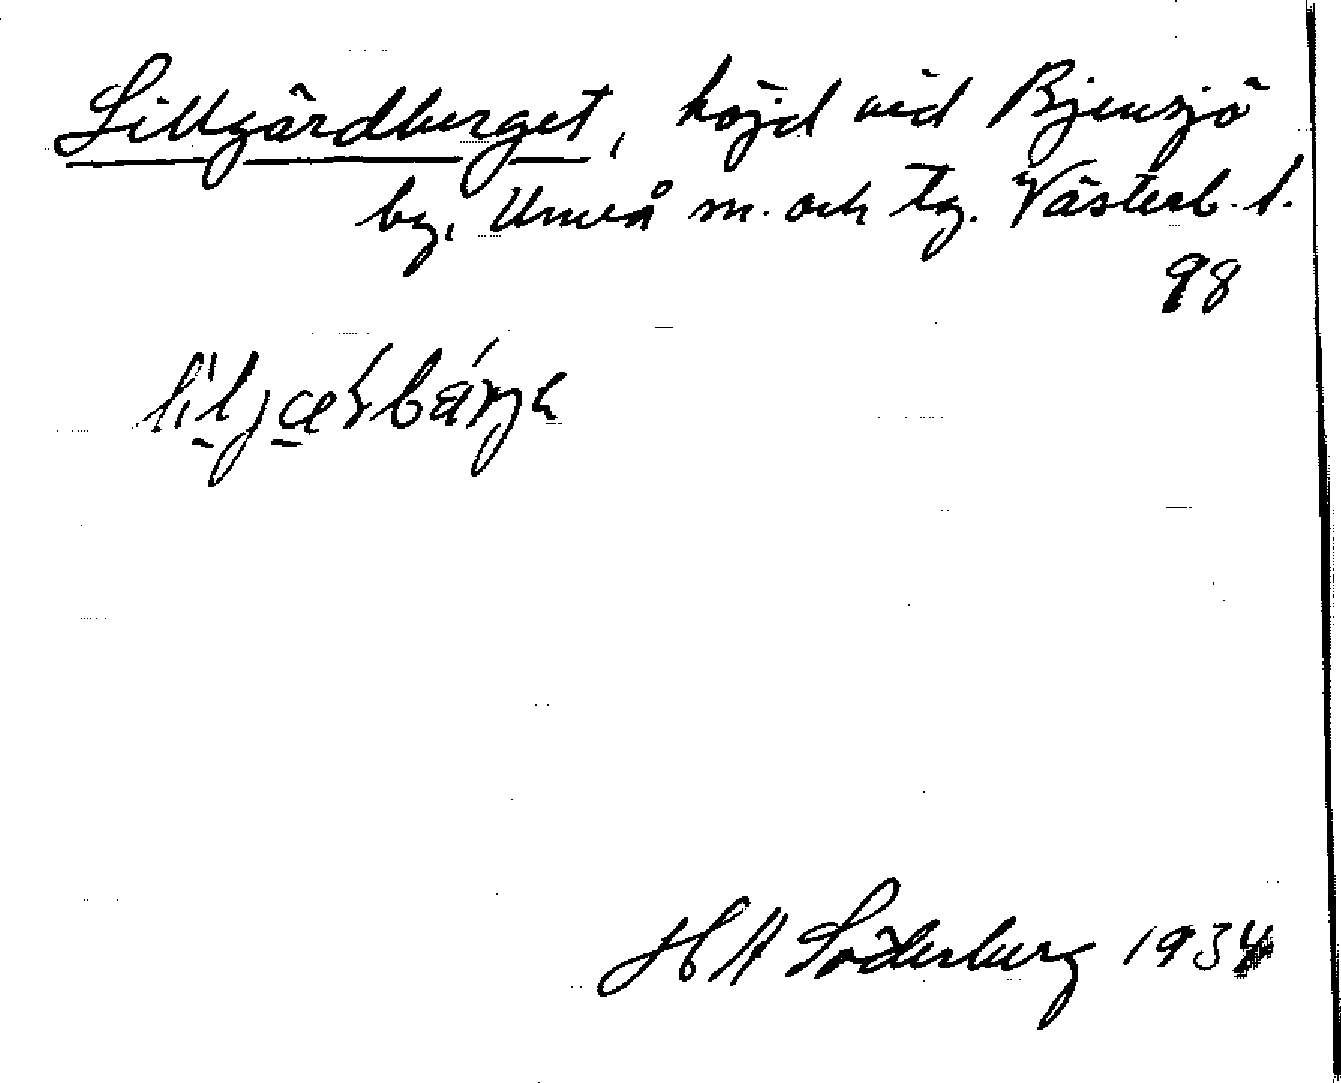 Lillgärdberget, höjd vid Bjensjö
by, Umeå m. och tg. Västerb. l.
98
H A Söderberg 1934